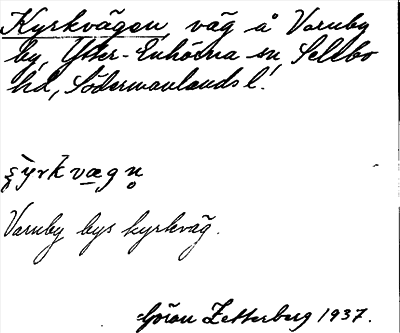 Kyrkvägen, väg å Varnby
by, Ytter-Enhörna sn, Selebo
hd, Södermanlands l.
Varnby bys kyrkväg.
Göran Zetterberg 1937.